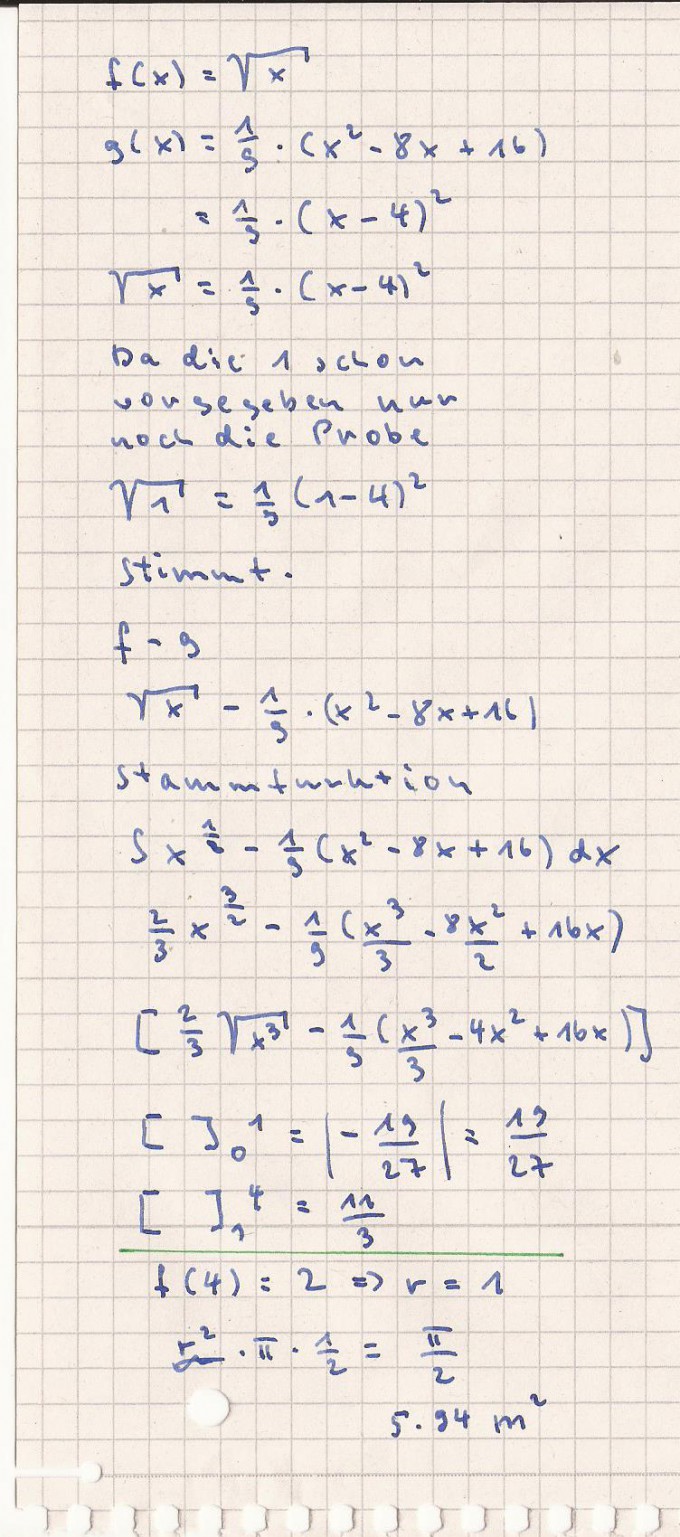 f(x) = √x
g(x) = 1/9 · (x² - 8x + 16)
= 1/9 · (x - 4)²
√x = 1/9 · (x - 4)²
Da die 1 schon
vorgegeben nur
noch die Probe
√1 = 1/9 (1 - 4)²
Stimmt.
f - g
√x - 1/9 · (x² - 8x + 16)
Stammfunktion
∫ x^(1/2) - 1/9 (x² - 8x + 16) dx
2/3 x^(3/2) - 1/9 (x³/3 - 8x²/2 + 16x)
[ 2/3 √x³ - 1/9 (x³/3 - 4x² + 16x) ]
[ ]₀¹ = | - 19/27 | = 19/27
[ ]₁⁴ = 11/3
f(4) = 2 => r = 1
r² · π · 1/2 = π/2
5.94 m²